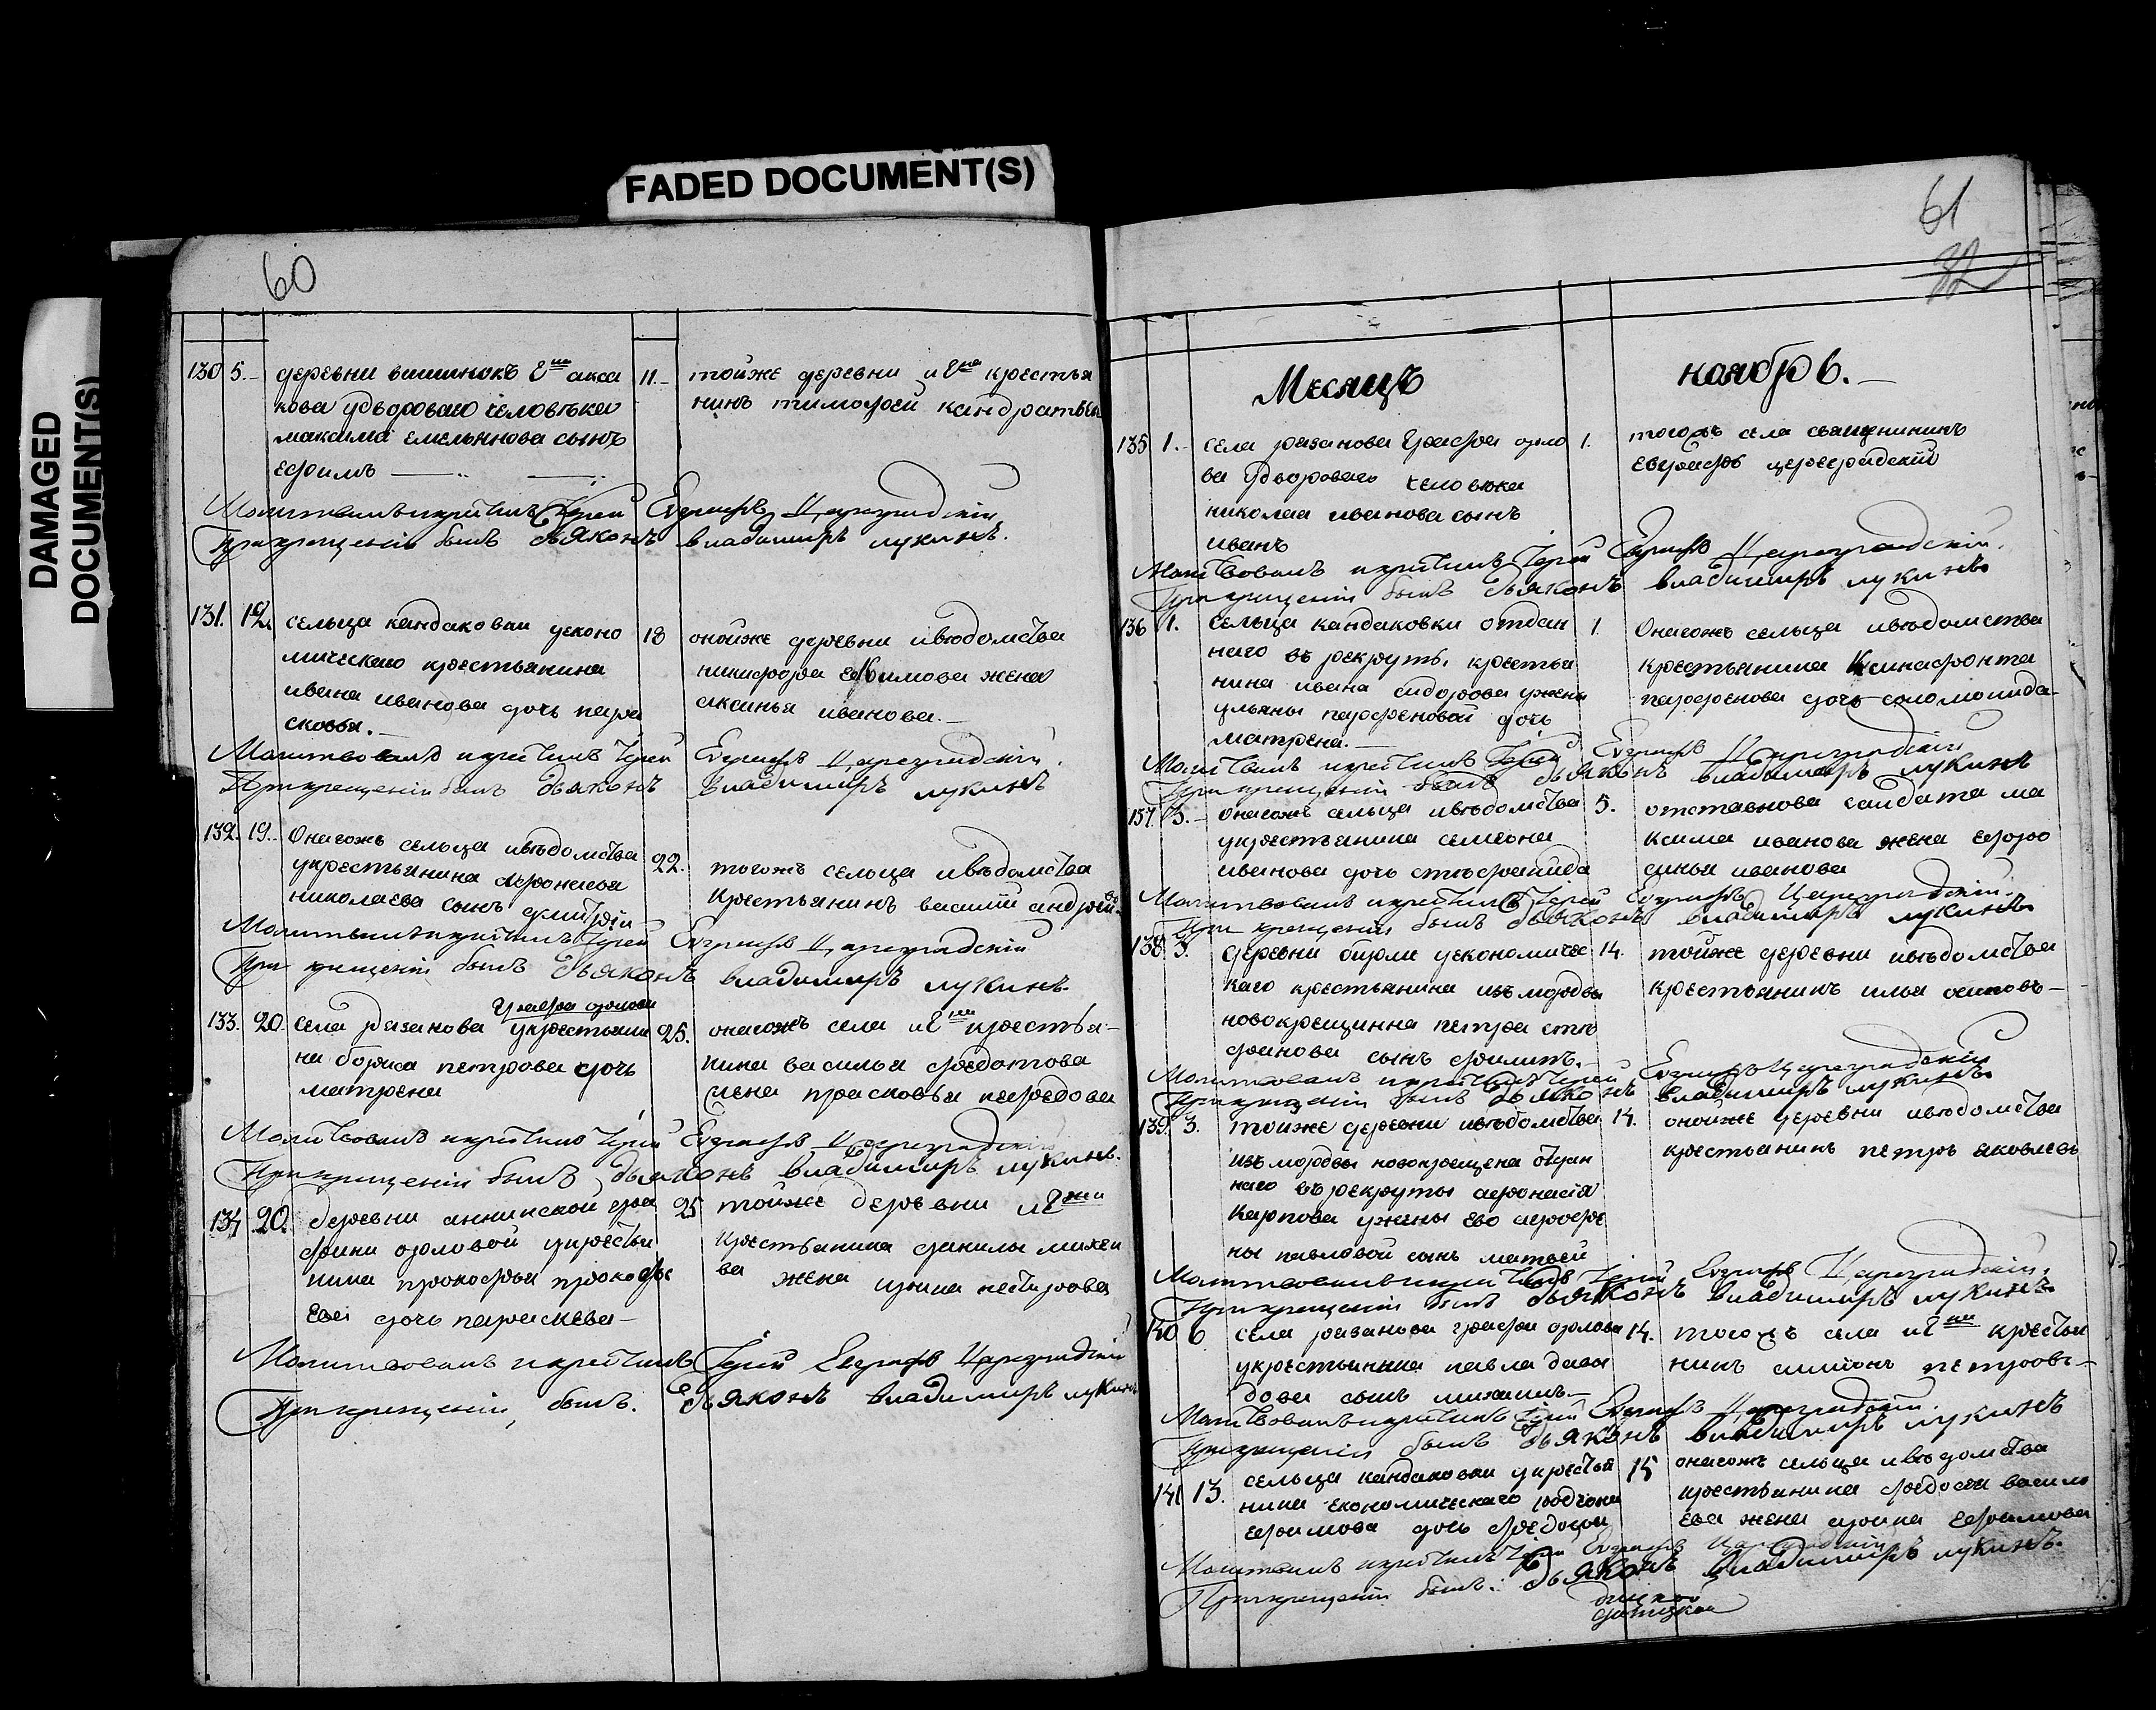 FADED DOCUMENT(S)
DAMAGED
DOCUMENT(S)
60
130 5. деревни вишинокъ Гна акса
кова удвороваго человѣка
максима емельянова сынъ
ефимъ
11. тойже деревни и Гна крестья
нинъ тимофей кандратьевъ
Молитвовалъ и крестилъ Іерей Евграфъ Цареградскій
При крещеніи былъ дьяконъ владимиръ лукинъ.
131. 12. сельца кандаковки уеконо
мическаго крестьянина
ивана иванова дочь пара
сковья.
18 онойже деревни ивѣдомства
никифора ефимова жена
аксинья иванова.
Молитвовалъ и крестилъ Іерей Евграфъ Цареградскій.
При крещеніи былъ дьяконъ владимиръ лукинъ
132. 19. Онагожъ сельца ивѣдомства
укрестьянина афонасья
николаева сынъ дмитрей
22. тогожъ сельца ивѣдомства
крестьянинъ василий андреевъ
Молитвовалъ и крестилъ Іерей Евграфъ Цареградскій
При крещеніи былъ дьяконъ владимиръ лукинъ.
графа орлова
133. 20. села разанова укрестьяни
на бориса петрова дочь
матрена
25. онагожъ села и Гна крестья-
нина василья федотова
жена прасковья нефедова
Молитвовалъ и крестилъ Іерей Евграфъ Цареградскій
При крещеніи былъ дьяконъ владимиръ лукинъ.
134 20. деревни аннинской гра
фини орловой укрестья
нина прокофья прокофь
ева дочь параскева
25 тойже деревни и Гжи
крестьянина данилы михеи
ва жена ирина нестирова
Молитвовалъ и крестилъ Іерей Евграфъ Цареградскій
При крещеніи былъ. дьяконъ владимиръ лукинъ
61
32
Месяцъ ноябрь.
135 1. села разанова графа орло
ва удвороваго человека
николая иванова сынъ
иванъ
1. тогожъ села священникъ
Евграфъ цареградский
Молитвовалъ и крестилъ Іерей Евграфъ Цареградскій.
При крещеніи былъ дьяконъ владимиръ лукинъ
136 1. сельца кандаковки отдан
наго въ рекруты крестья
нина ивана сидорова ужены
ульяны парфеновой дочь
матрена.
1. Онагожъ сельца ивѣдомства
крестьянина Ксинафонта
парфенова дочь соломонида
Молитвовалъ и крестилъ Іерей Евграфъ Цареградскій
При крещеніи былъ дьяконъ владимиръ лукинъ
137 3. онагожъ сельца ивѣдомства
укрестьянина семиона
иванова дочь стѣфанида
5. отставнова салдата ма
ксима иванова жена ефро
синья иванова
Молитвовалъ и крестилъ Іерей Евграфъ Цареградскій.
При крещеніи былъ дьяконъ владимиръ лукинъ
138 3. деревни бирли уекономичес
каго крестьянина изъ мордвы
новокрещинна петра сте
фанова сынъ филипъ.
14. тойже деревни ивѣдомства
крестьянинъ илья осиповъ
Молитвовалъ и крестилъ Іерей Евграфъ Цареградскій
При крещеніи былъ дьяконъ владимиръ лукинъ
139. 3. тойже деревни ивѣдомства
изъ мордвы новокрещена отдан
наго въ рекруты афонасія
Карпова ужены ево
ны павловой сынъ матвей
14. онойже деревни ивѣдомства
крестьянинъ петръ яковлевъ
Молитвовалъ и крестилъ Іерей Евграфъ Цареградскій.
При крещеніи былъ дьяконъ владимиръ лукинъ
140 6 села разанова графа орлова
укрестьянина павла давы
дова сынъ михаилъ.
14. тогожъ села и Гна крестья
нинъ симионъ петровъ
Молитвовалъ и крестилъ Іерей Евграфъ Цареградскій.
При крещеніи былъ дьяконъ владимиръ лукинъ
141 13. сельца кандаковки укрестья
нина економическаго родіона
ефимова дочь федосья
15 онагожъ сельца ивѣдомства
крестьянина федосея василь
ева жена ирина ефимова
Молитвовалъ и крестилъ Іерей Евграфъ Цареградскій
При крещеніи былъ: дьяконъ владимиръ лукинъ.